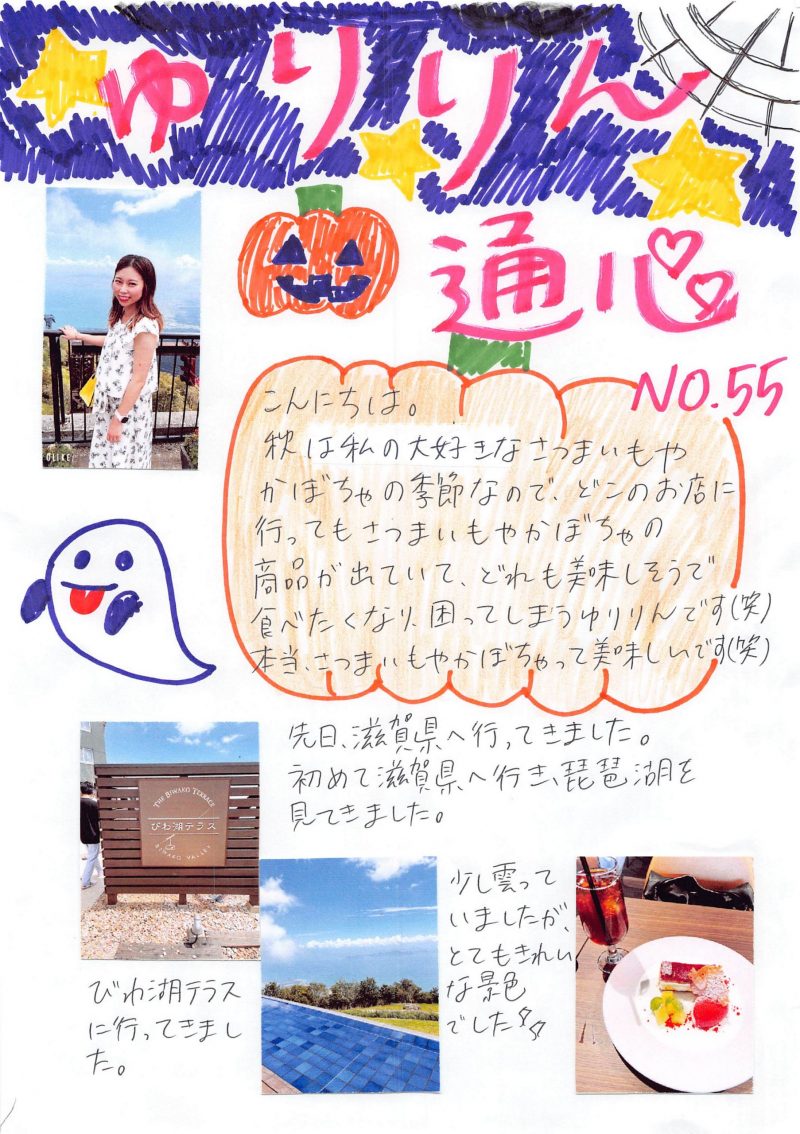 ゆりりん
通心
NO.55
こんにちは。
秋は私の大好きなさつまいもや
かぼちゃの季節なので、どこのお店に
行ってもさつまいもやかぼちゃの
商品が出ていて、どれも美味しそうで
食べたくなり、困ってしまうゆりりんです(笑)
本当、さつまいもやかぼちゃって美味しいです(笑)
先日、滋賀県へ行ってきました。
初めて滋賀県へ行き、琵琶湖を
見てきました。
THE BIWAKO TERRACE
びわ湖テラス
BIWAKO VALLEY
びわ湖テラス
に行ってきまし
た。
少し雲って
いましたが、
とてもきれい
な景色
でした